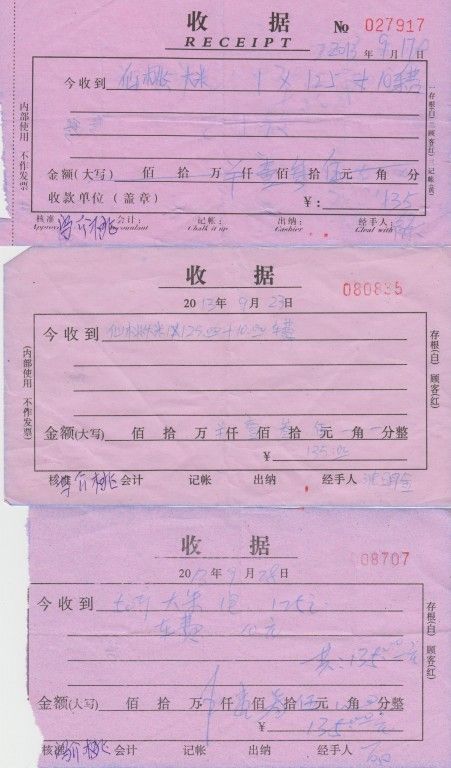 收 据
RECEIPT
№ 027917
2013 年 9 月 17 日
今收到 仙桃 大米 1 X 125 + 10车费
金额(大写) 佰 拾 万 仟 壹佰 叁拾 伍元 角 分
收款单位（盖章） ￥: 135
核准 会计： 记帐： 出纳： 经手人：
Chalk it up Cashier Cleal with
内部使用 不作发票
存根(白) 顾客(红) 记帐(黄)
收 据
080835
2013年 9 月 23日
今收到 仙桃大米1X125.00+10.00车费
金额(大写) 佰 拾 万 仟 壹佰 叁拾 伍元 角 分整
￥ 135.00
核准 会计 记帐 出纳 经手人
(内部使用 不作发票)
存根(白) 顾客(红)
收 据
08707
2013年 9 月 28日
今收到 大米 1包 125元
车费 10元
共: 135元
金额(大写) 佰 拾 万 仟 壹佰 叁拾 伍元 角 分整
￥ 135
核准 会计 记帐 出纳 经手人
存根(白) 顾客(红)